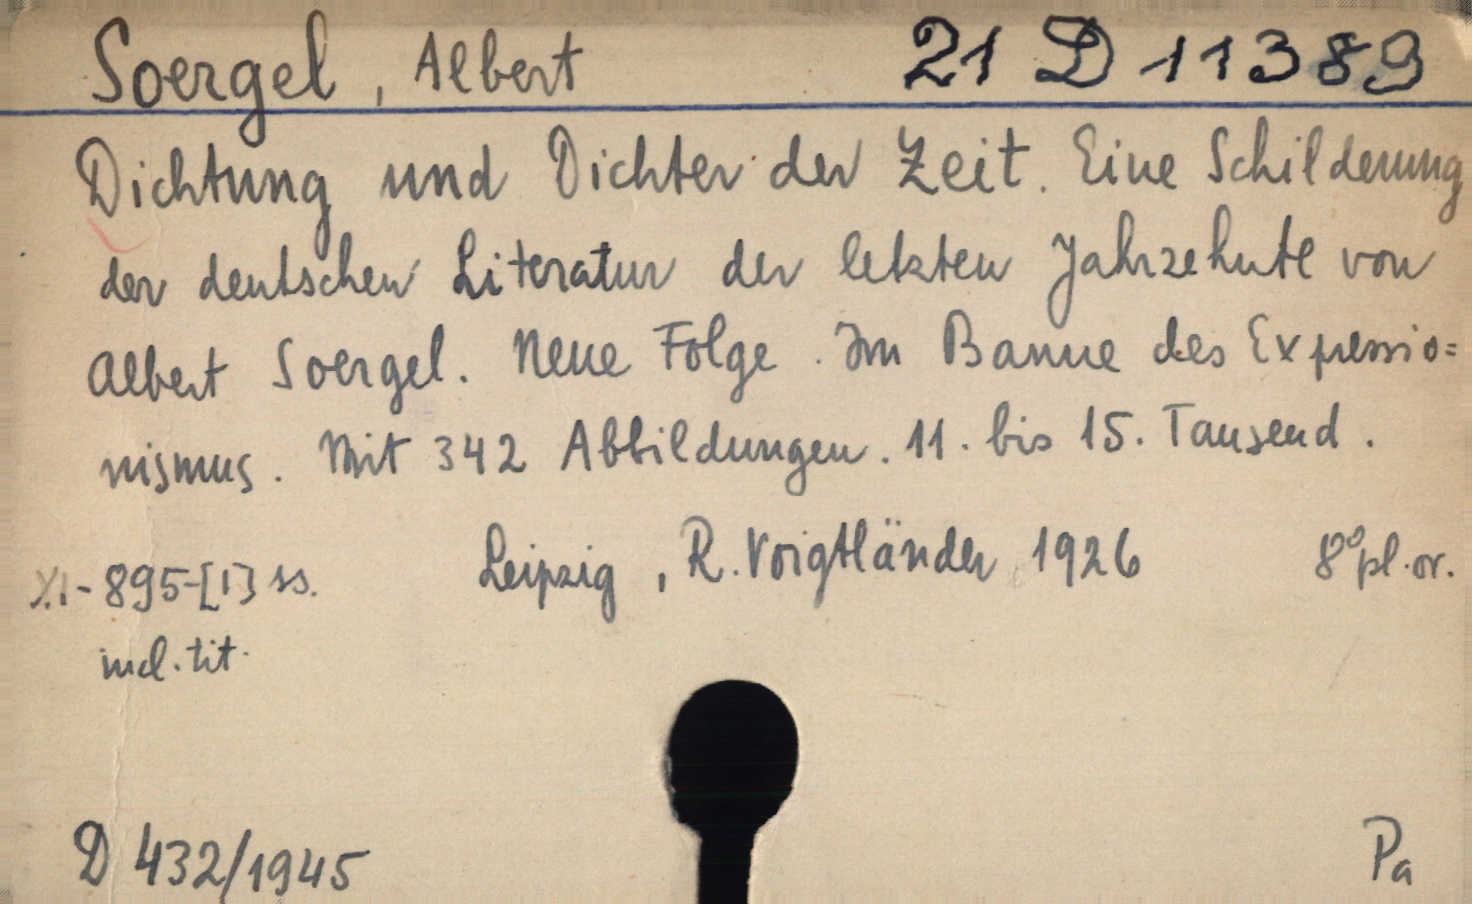 Soergel, Albert 21 D 11389
Dichtung und Dichter der Zeit. Eine Schilderung
der deutschen Literatur der letzten Jahrzehnte von
Albert Soergel. Neue Folge. Im Banne des Expressio=
nismus. Mit 342 Abbildungen. 11. bis 15. Tausend.
Leipzig, R. Voigtländer 1926 8° pl. or.
XI-895-[1] ss.
incl. tit.
D 432/1945 Pa